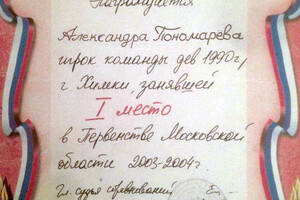 Награждается
Александра Пономарёва
игрок команды дев 1990г/
г. Химки, занявшей
I место
в Первенстве Московской
области 2003-2004г
Гл. судья соревнований